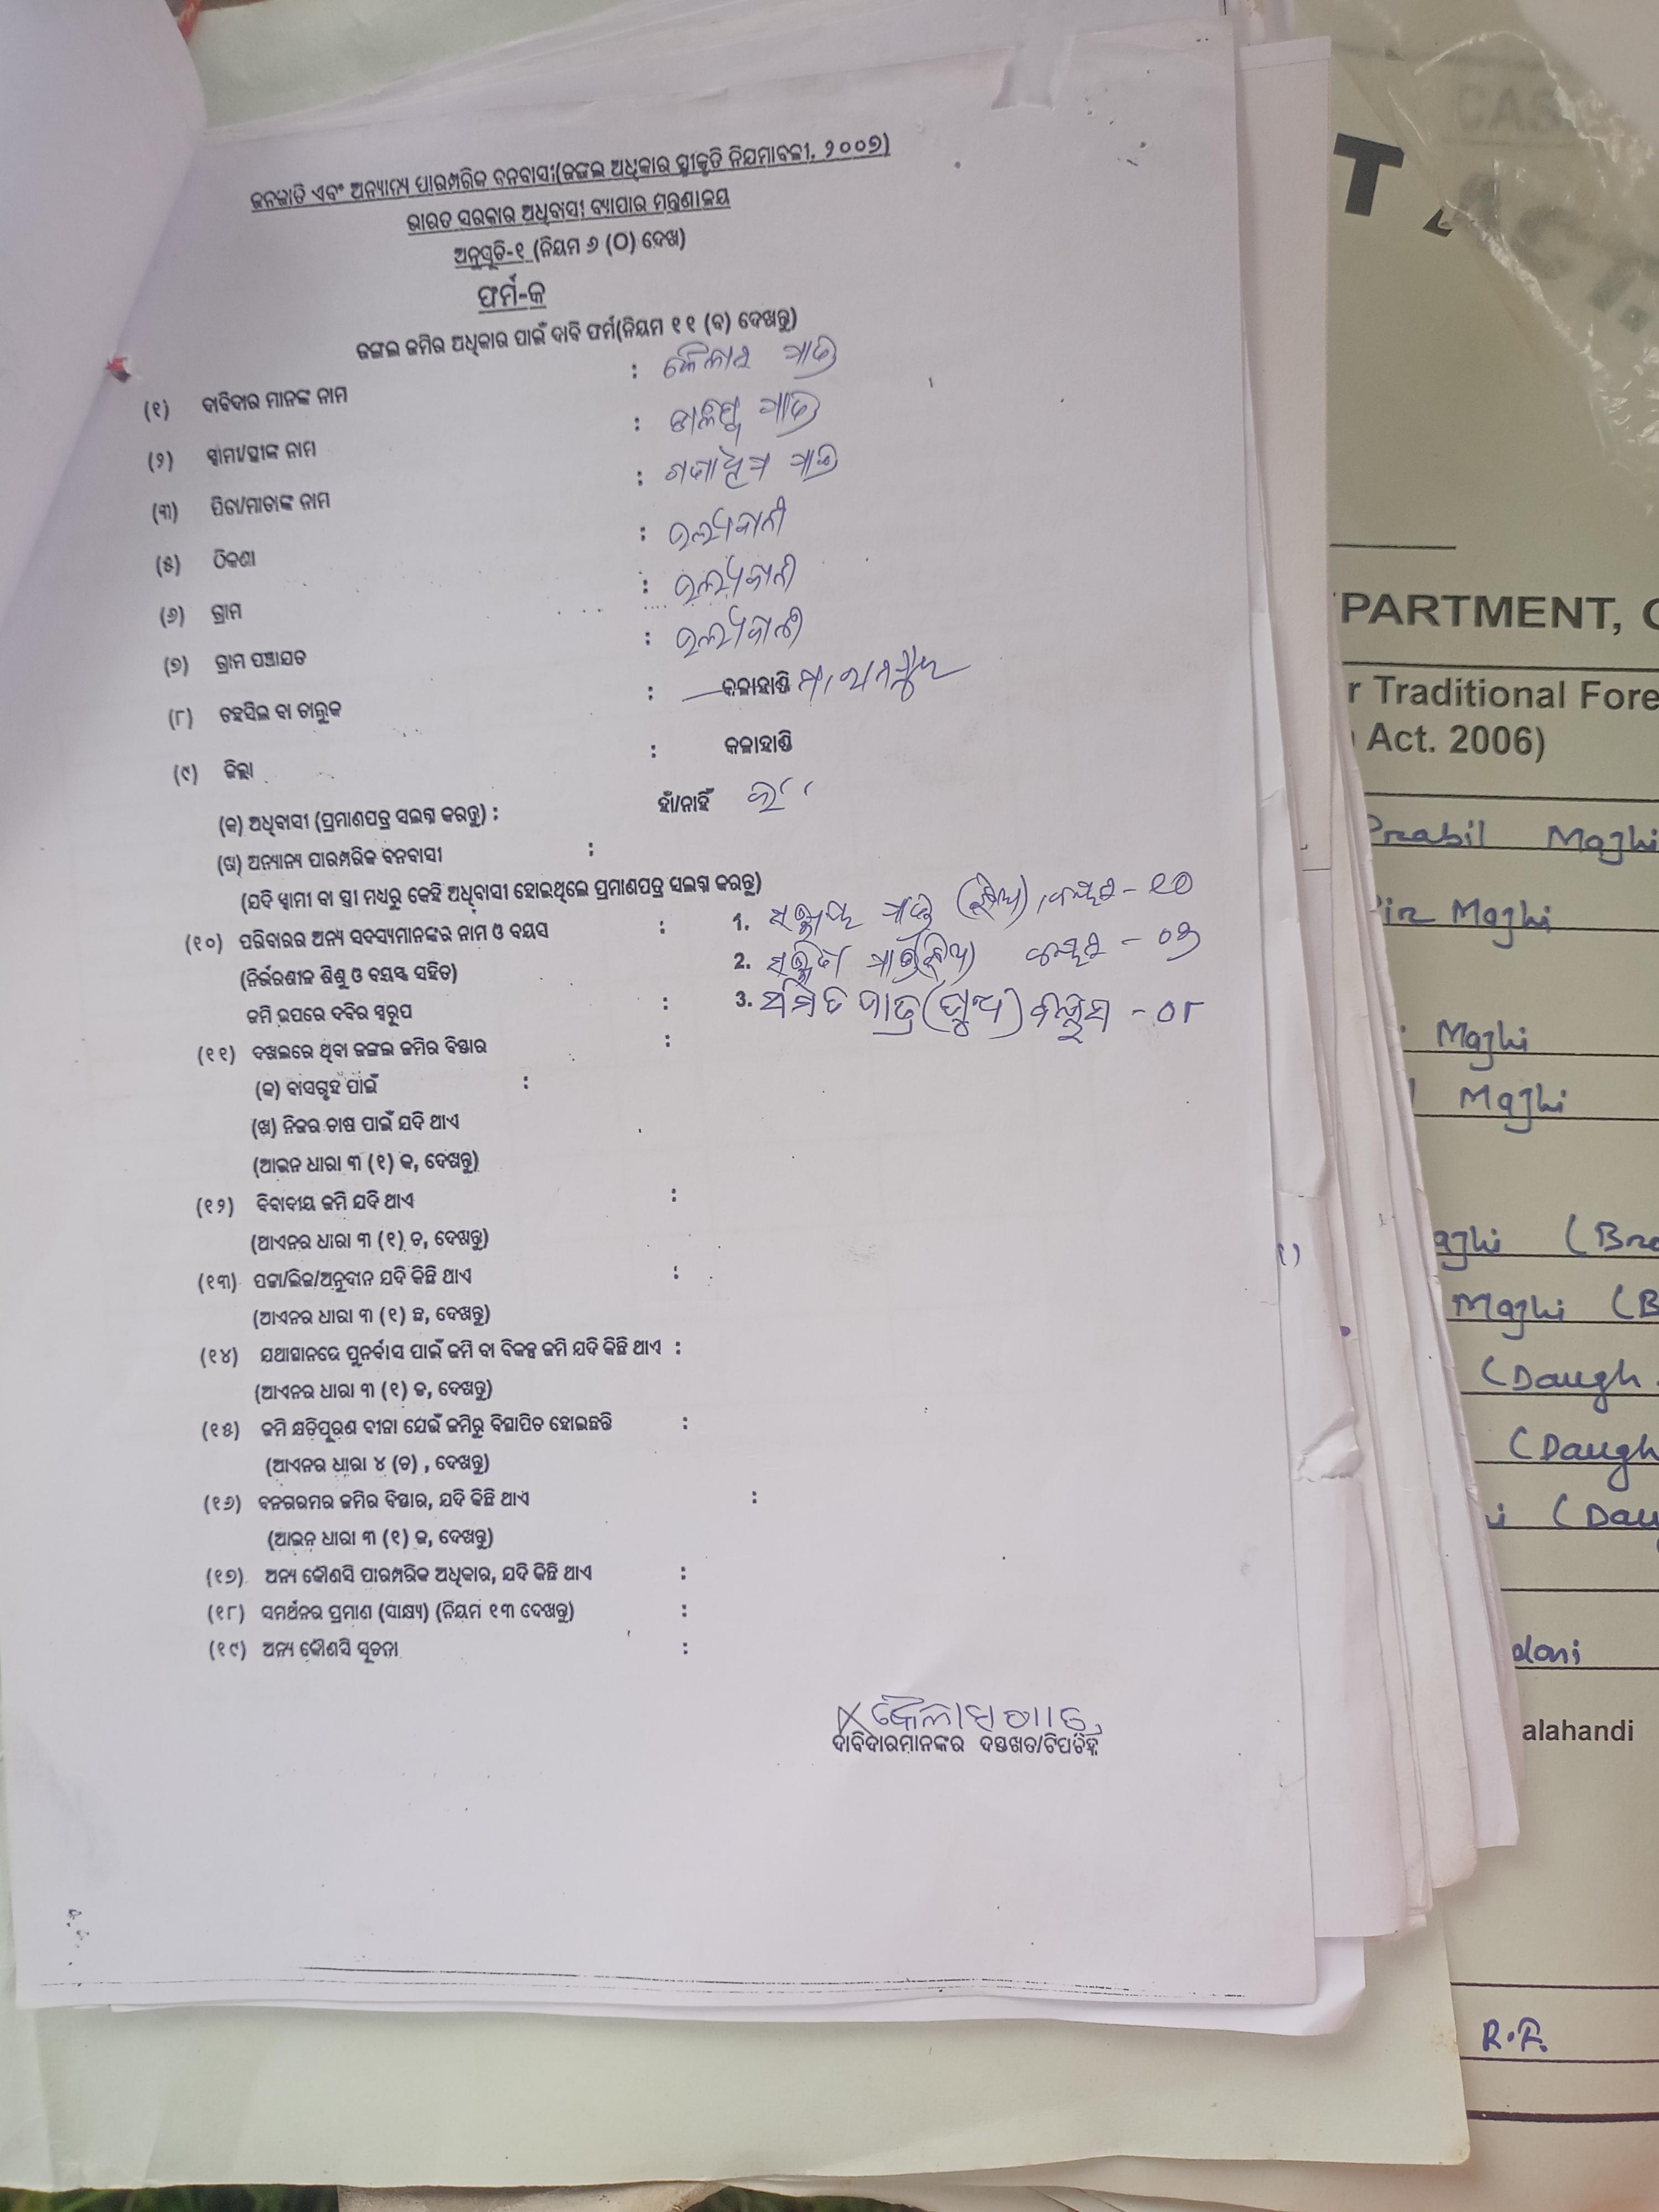 ଜନଜାତି ଏବଂ ଅନ୍ୟାନ୍ୟ ପାରମ୍ପରିକ ବନବାସୀ(ଜଙ୍ଗଲ ଅଧିକାର ସ୍ୱୀକୃତି ନିୟମାବଳୀ, ୨୦୦୭)
ଭାରତ ସରକାର ଅଧିବାସୀ ବ୍ୟାପାର ମନ୍ତ୍ରଣାଳୟ
ଅନୁସୂଚି-୧ (ନିୟମ ୬ (ଠ) ଦେଖ)
ଫର୍ମ-କ
ଜଙ୍ଗଲ ଜମିର ଅଧିକାର ପାଇଁ ଦାବି ଫର୍ମ(ନିୟମ ୧୧ (ବ) ଦେଖନ୍ତୁ)
(୧) ଦାବିଦାର ମାନଙ୍କ ନାମ : କୈଳାସ ପାତ୍ର
(୨) ସ୍ୱାମୀ/ସ୍ତ୍ରୀଙ୍କ ନାମ : ପାତ୍ର
(୩) ପିତା/ମାତାଙ୍କ ନାମ : ପାତ୍ର
(୫) ଠିକଣା :
(୬) ଗ୍ରାମ :
(୭) ଗ୍ରାମ ପଞ୍ଚାୟତ :
(୮) ତହସିଲ ବା ତାଲୁକ : କଳାହାଣ୍ଡି
(୯) ଜିଲ୍ଲା : କଳାହାଣ୍ଡି
(କ) ଅଧିବାସୀ (ପ୍ରମାଣପତ୍ର ସଲଗ୍ନ କରନ୍ତୁ) : ହାଁ/ନାହିଁ
(ଖ) ଅନ୍ୟାନ୍ୟ ପାରମ୍ପରିକ ବନବାସୀ :
(ଯଦି ସ୍ୱାମୀ ବା ସ୍ତ୍ରୀ ମଧ୍ୟରୁ କେହି ଅଧିବାସୀ ହୋଇଥିଲେ ପ୍ରମାଣପତ୍ର ସଲଗ୍ନ କରନ୍ତୁ)
(୧୦) ପରିବାରର ଅନ୍ୟ ସଦସ୍ୟମାନଙ୍କର ନାମ ଓ ବୟସ : 1. ପାତ୍ର (ଝିଅ) ବୟସ - ୧୦
(ନିର୍ଭରଶୀଳ ଶିଶୁ ଓ ବୟସ୍କ ସହିତ) 2. ପାତ୍ର (ଝିଅ) ବୟସ - ୦୭
ଜମି ଉପରେ ଦବିର ସ୍ୱରୂପ : 3. ପାତ୍ର (ପୁଅ) - ୦୮
(୧୧) ଦଖଲରେ ଥିବା ଜଙ୍ଗଲ ଜମିର ବିସ୍ତାର :
(କ) ବାସଗୃହ ପାଇଁ :
(ଖ) ନିଜର ଚାଷ ପାଇଁ ଯଦି ଥାଏ
(ଆଇନ ଧାରା ୩ (୧) କ, ଦେଖନ୍ତୁ)
(୧୨) ବିବାଦୀୟ ଜମି ଯଦି ଥାଏ :
(ଆଏନର ଧାରା ୩ (୧) ଚ, ଦେଖନ୍ତୁ)
(୧୩) ପଟ୍ଟା/ଲିଜ/ଅନୁଦାନ ଯଦି କିଛି ଥାଏ :
(ଆଏନର ଧାରା ୩ (୧) ଛ, ଦେଖନ୍ତୁ)
(୧୪) ଯଥାସ୍ଥାନରେ ପୁନର୍ବାସ ପାଇଁ ଜମି ବା ବିକଳ୍ପ ଜମି ଯଦି କିଛି ଥାଏ :
(ଆଏନର ଧାରା ୩ (୧) ଜ, ଦେଖନ୍ତୁ)
(୧୫) ଜମି କ୍ଷତିପୂରଣ ବୀନା ଯେଉଁ ଜମିରୁ ବିସ୍ଥାପିତ ହୋଇଛନ୍ତି :
(ଆଏନର ଧାରା ୪ (ଚ) , ଦେଖନ୍ତୁ)
(୧୬) ବନଗରମର ଜମିର ବିସ୍ତାର, ଯଦି କିଛି ଥାଏ :
(ଆଇନ ଧାରା ୩ (୧) ଜ, ଦେଖନ୍ତୁ)
(୧୭) ଅନ୍ୟ କୌଣସି ପାରମ୍ପରିକ ଅଧିକାର, ଯଦି କିଛି ଥାଏ :
(୧୮) ସମର୍ଥନର ପ୍ରମାଣ (ସାକ୍ଷ୍ୟ) (ନିୟମ ୧୩ ଦେଖନ୍ତୁ) :
(୧୯) ଅନ୍ୟ କୌଣସି ସୂଚନା :
କୈଳାସ ପାତ୍ର
ଦାବିଦାରମାନଙ୍କର ଦସ୍ତଖତ/ଟିପଚିହ୍ନ
CAS
T.
ACT.
PARTMENT,
r Traditional Fore
Act. 2006)
Prabil Majhi
Majhi
Majhi
Majhi
ajhi (Bro
Majhi (B
(Daugh
(Daugh
(Dau
dani
alahandi
R.F.